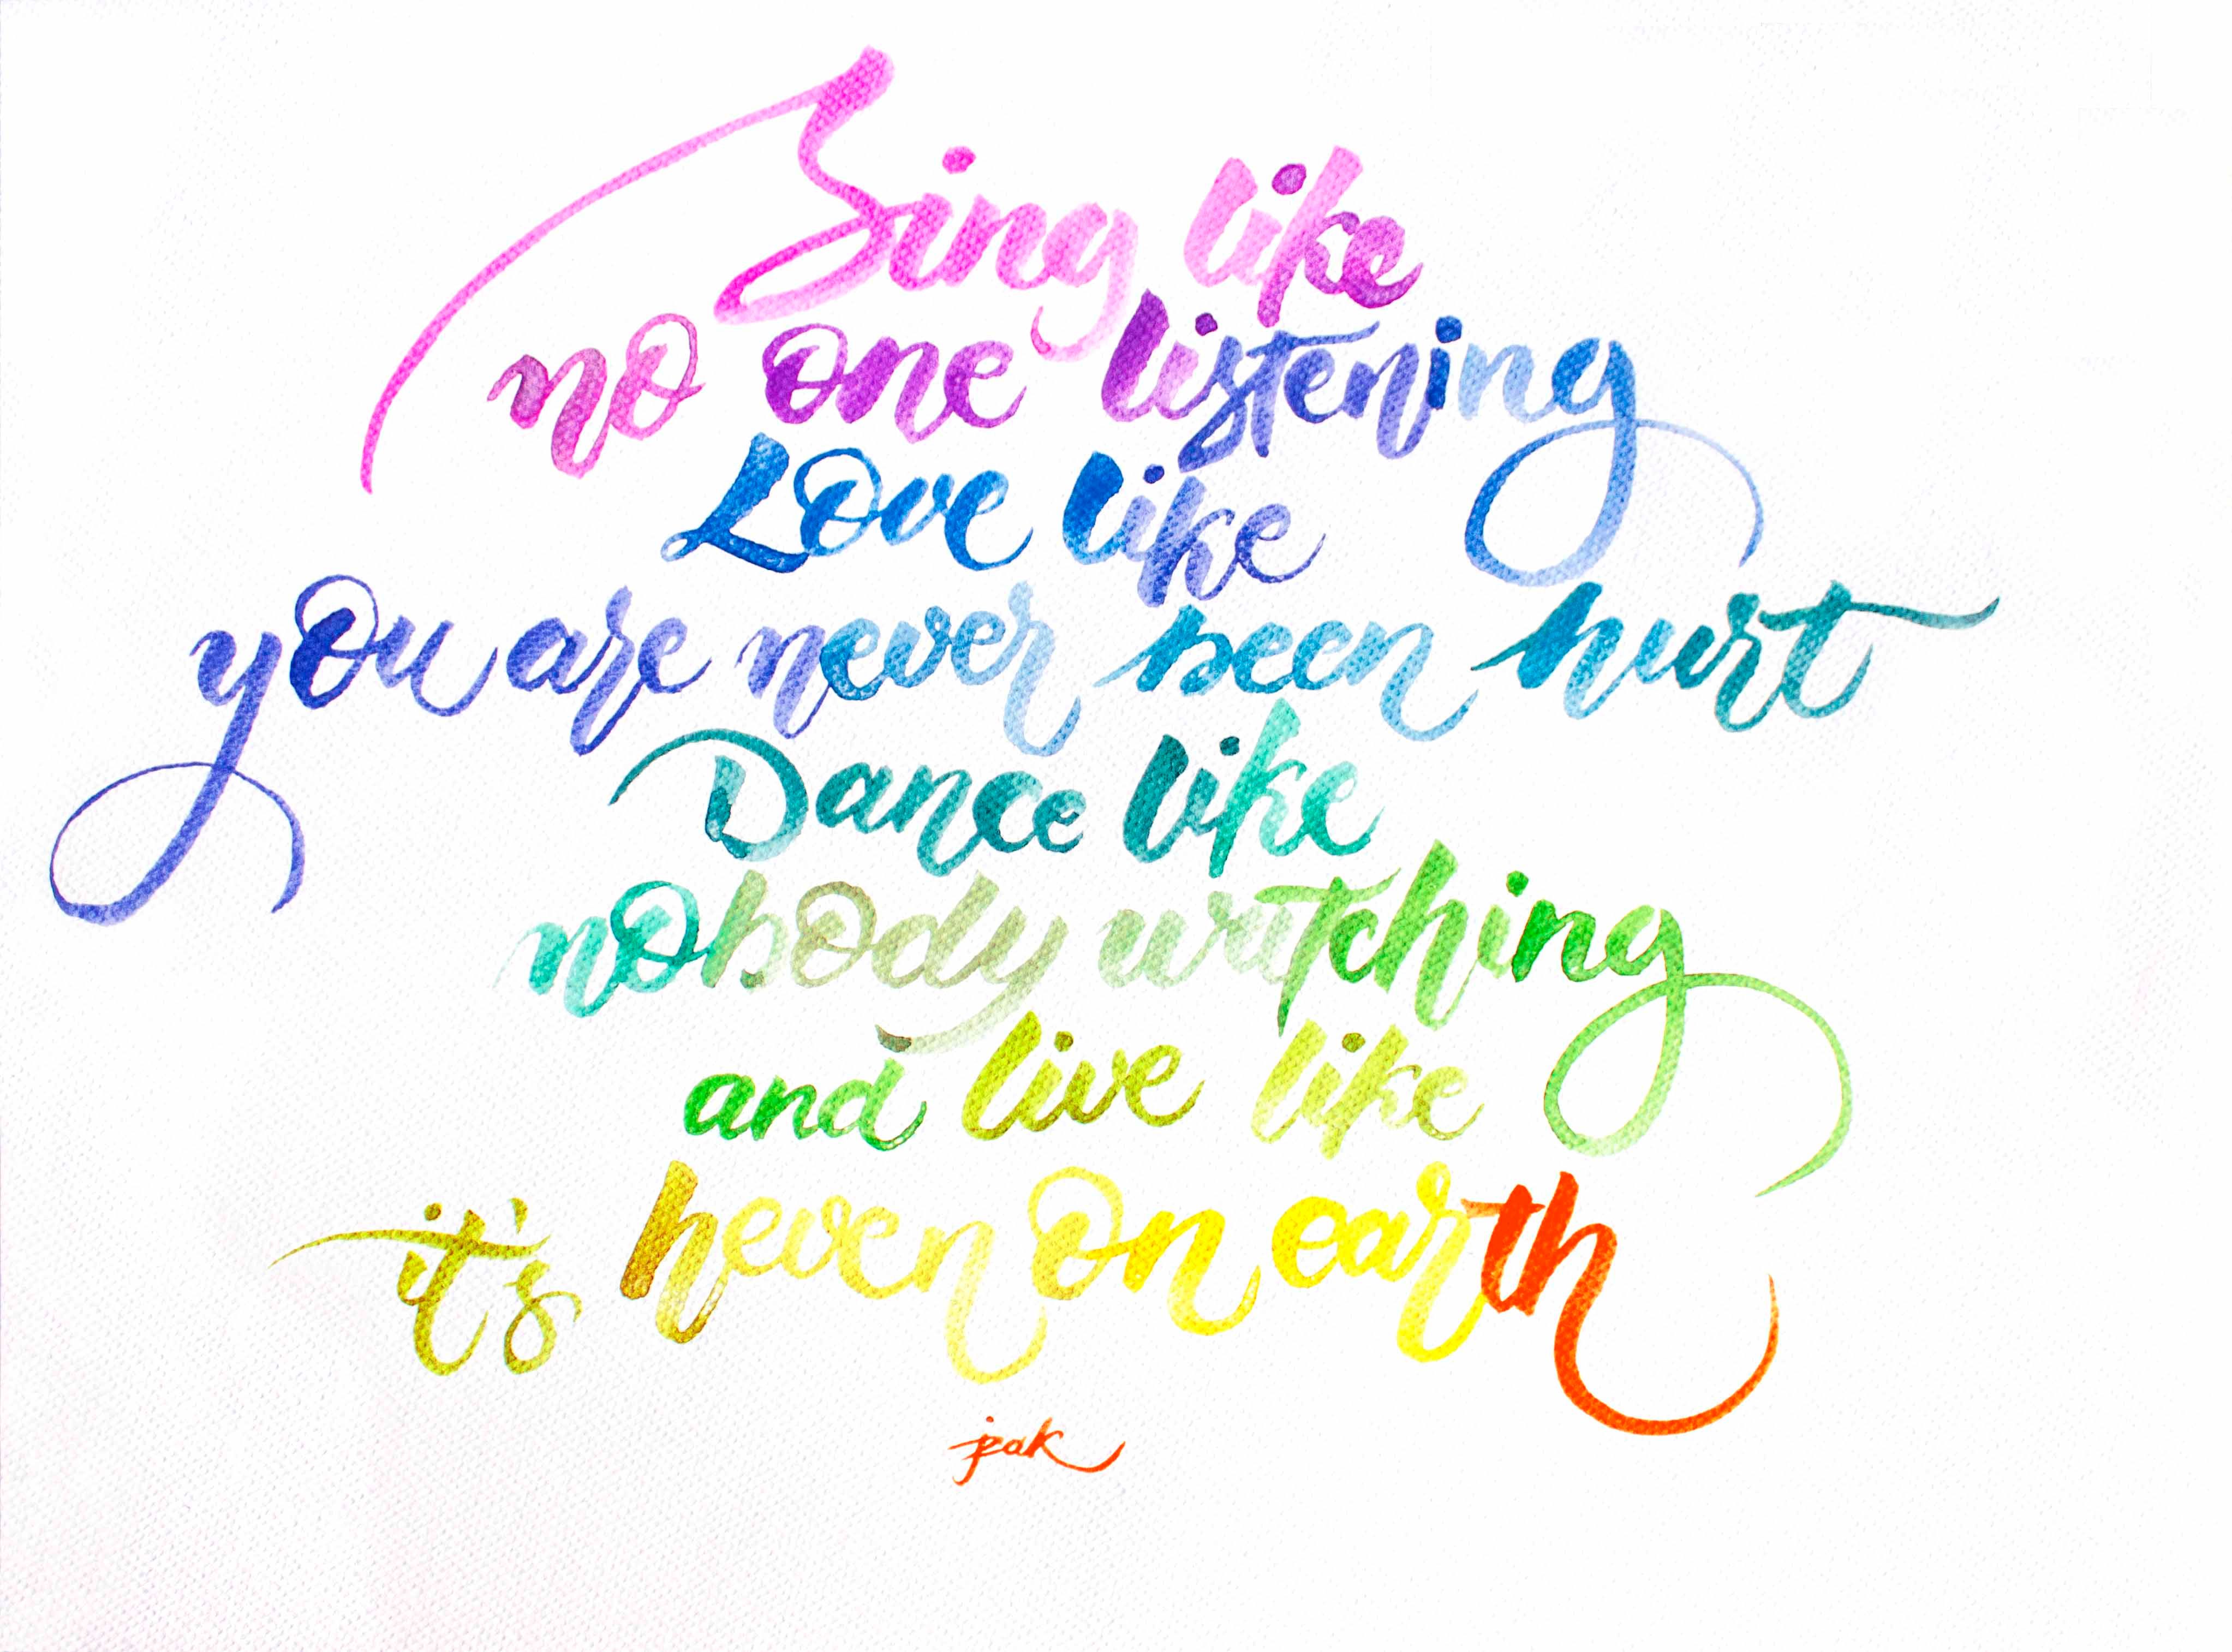 Sing like
no one listening
Love like
you are never been hurt
Dance like
nobody watching
and live like
it's heven on earth